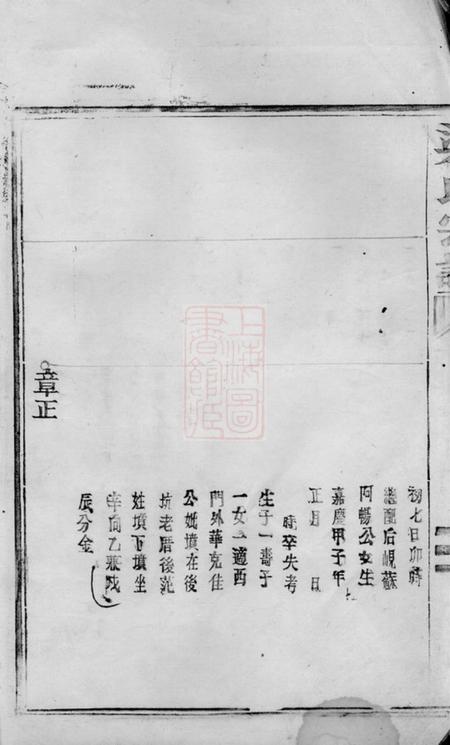 梁氏宗譜
初七日卯時
繼配后峴蘇
阿暢公女生
嘉慶甲子年
正月 日
時卒失考
生子一啚子
一女一適西
門外華克佳
公妣墳在後
坑老厝後范
姓墳下墳坐
辛向乙兼戌
辰分金
章正
上海圖書館藏